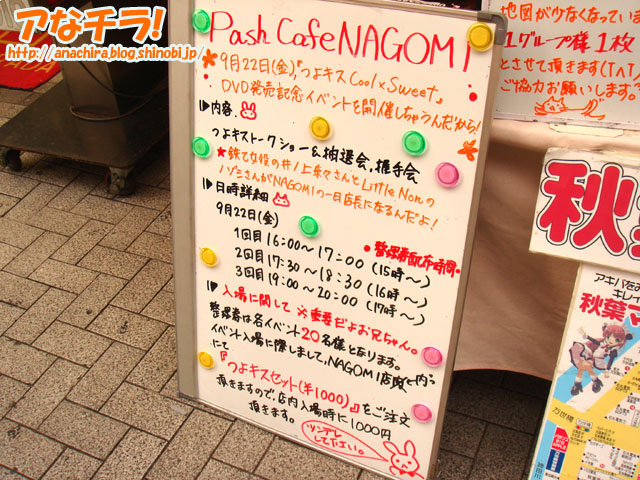 アなチラ!
http://anachira.blog.shinobi.jp/
Pash Cafe NAGOMI
9月22日(金)、『つよキス Cool×Sweet』
DVD発売記念イベントを開催しちゃうんだから!
内容.
つよキストークショー&抽選会,握手会
★鉄乙女役の井ノ上奈々さんとLittle Nonの
ノゾミさんがNAGOMIの一日店長になるんだよ!
日時詳細
9月22日(金)
●整理券配布時間●
1回目 16:00〜17:00 (15時〜)
2回目 17:30〜18:30 (16時〜)
3回目 19:00〜20:00 (17時〜)
入場に関して ※重要だよお兄ちゃん。
整理券は各イベント20名様となります。
イベント入場に際しまして、NAGOMI店内
にて
『つよキスセット(¥1000)』をご注文
頂きますので、店内入場時に1000円
頂きます。
ツンデレ
してください。
地図が少なくなってい
1グループ様1枚
とさせて頂きます(TAT)
ご協力お願いします。
秋
アキバをも
キレイ
秋葉マ
万世橋